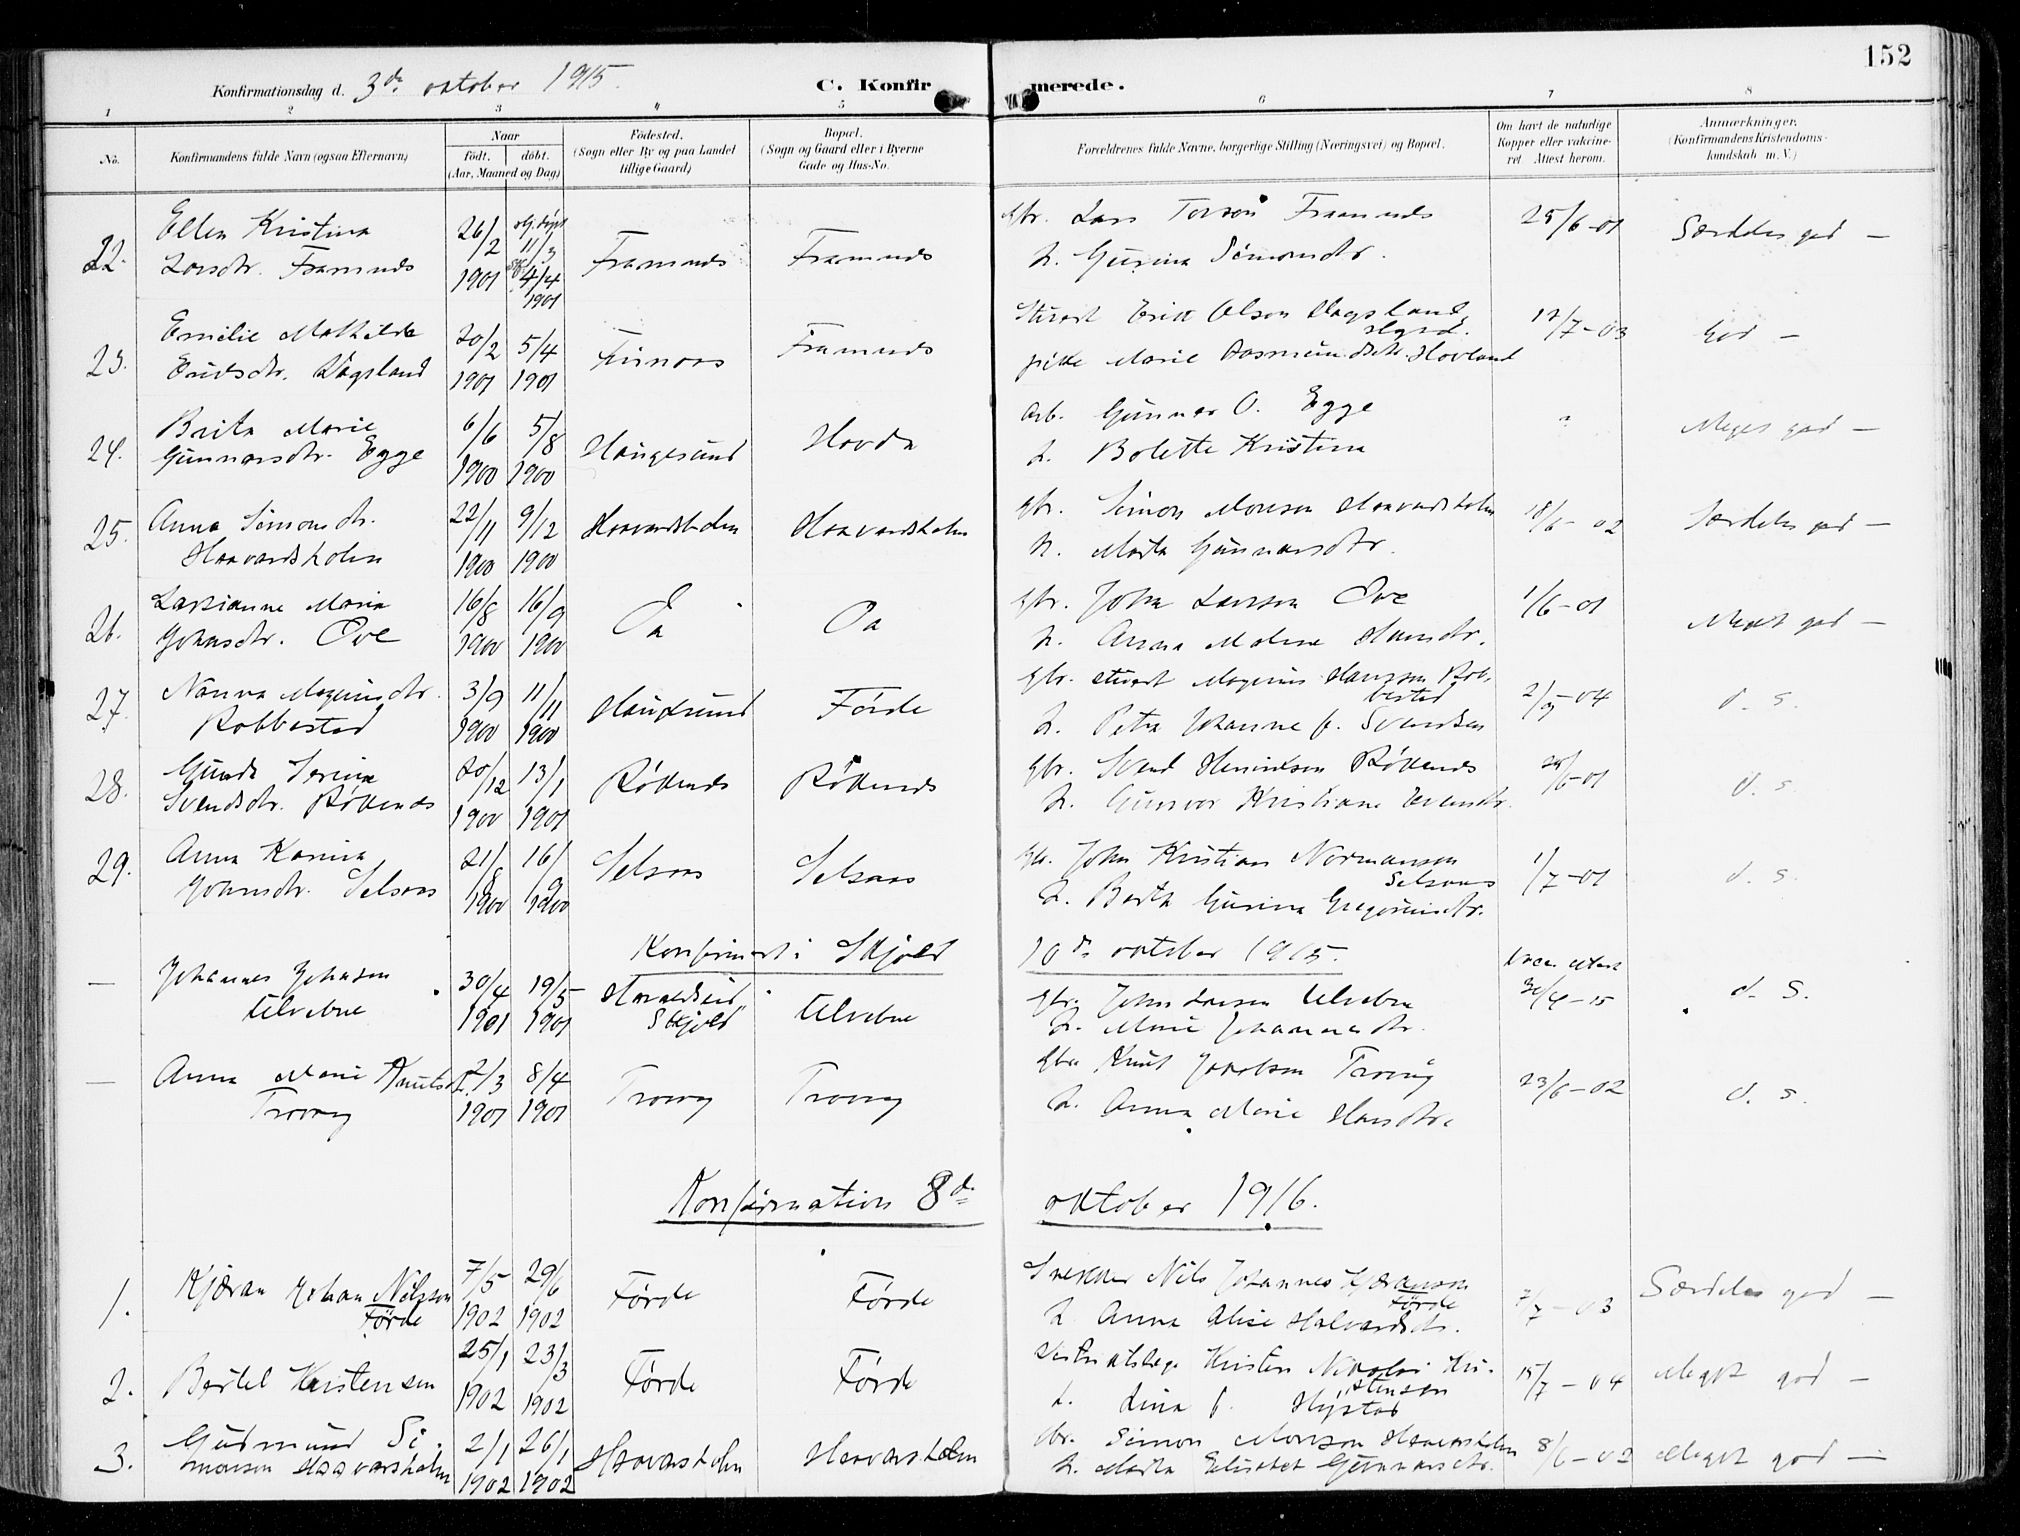 152
Konfirmationsdag d. 3d. oktober 1915.
C. Konfirmerede.
1 2 3 4 5 6 7 8
No.
Konfirmandens fulde Navn (ogsaa Efternavn)
Naar
født. døbt.
(Aar, Maaned og Dag)
Fødested.
(Sogn eller By og paa Landet
tillige Gaard)
Bopæl.
(Sogn og Gaard eller i Byerne
Gade og Hus-No.
Forældrenes fulde Navne, borgerlige Stilling (Næringsvei) og Bopæl.
Om havt de naturlige
Kopper eller vakcine-
ret. Attest herom.
Anmærkninger.
(Konfirmandens Kristendoms-
kundskab m. V.)
22. Ellen Kristina
Larsdtr. Framnæs
26/2 1901
11/3 4/4 1901
Framnæs
Framnæs
gbr. Lars Framnæs
h. Gurina Simonsdtr.
25/6-01
Særdeles god —
23. Emilie Mathilde
Eriksdtr. Vågsland
20/2 1901
5/4 1901
Framnæs
Erik Olson Vågsland
pike Marie Rasmusdtr. Hovland
17/7-03
God —
24. Brita Marie
Gunnarsdtr. Egge
6/6 1900
5/8 1900
Haugesund
Hovda
Arb. Gunnar O. Egge
h. Bolette Kristina
Meget god —
25. Anna Simonsdtr.
Haavardsholm
22/11 1900
9/12 1900
Haavardsholm
Haavardsholm
gbr. Simon Monsen Haavardsholm
h. Marta Gunnarsdtr.
18/6-02
Særdeles god —
26. Larsianne Maria
Johnsdtr. Øve
16/8 1900
16/9 1900
Oa
gbr. John Larsson Øve
h. Anna Malene Hansdtr.
1/6-01
Meget god —
27. Nanna Magnusdtr.
Robbestad
3/9 1900
11/11 1900
Haugesund
Førde
gbr. Magnus Hansson Rob-
bestad
h. Petra Johanne f. Svendsen
2/9-04
d. s.
28. Gunda Serina
Svendsdtr. Rökenes
20/12 1900
13/1 1901
Rökenes
Rökenes
gbr. Svend Henrikson Rökenes
h. Gunvor Kristiane
28/6-01
d. s.
29. Anna Karina
Johnsdtr. Selsaas
21/8 1900
16/9 1900
Selsaas
Selsaas
gbr. John Kristian Normanson
Selsaas
h. Berta Gurina Gregoriusdtr.
1/7-01
d. s.
Konfirmert i Skjold 10d. oktober 1915.
— Johannes Johnsen
Ulvebne
30/4 1901
19/5 1901
Skjold
Ulvebne
gbr. John Larsen Ulvebne
h. Marie Johannesdtr.
30/4-15
d. s.
— Anna Marie Knutsdtr.
Trovåg
2/3 1901
8/4 1901
Trovåg
Trovåg
gbr. Knut Jakobsen Trovåg
h. Anna Marie Hansdtr.
23/6-02
d. s.
Konfirmation 8d. oktober 1916.
1. Kjæran Johan Nilsson
Førde
7/5 1902
29/6 1902
Førde
Førde
Snekker Nils Johannes Kjæranson
Førde
h. Anna Alise Halvardsdtr.
7/7-03
Særdeles god —
2. Bertel Kristensen
25/1 1902
23/3 1902
Førde
Førde
Kristen Nikolai Kri-
stensen
h. Lina f. Hystad
15/7-04
Meget god —
3. Gudmund Si-
monsen Haavarsholm
2/1 1902
26/1 1902
Haavarsholm
Haavarsholm
gbr. Simon Monson Haavarsholm
h. Marta Elisabet Gunnarsdtr.
8/6-03
Meget god —